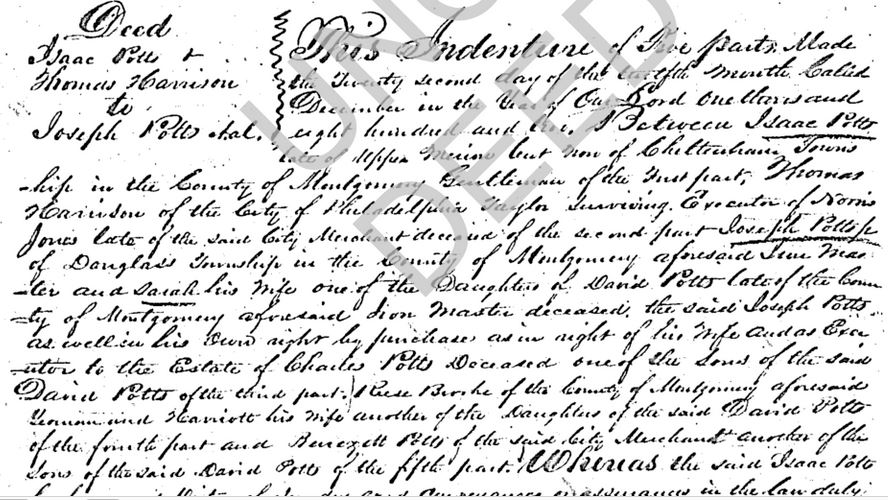 Deed
Isaac Potts &
Thomas Harrison
to
Joseph Potts & al.
This Indenture of Five parts. Made
the Twenty second day of the twelfth Month Called
December in the Year of Our Lord One thousand
eight hundred and two. Between Isaac Potts
late of Upper Merion but now of Cheltenham Towns
-hip in the County of Montgomery Gentleman of the first part, Thomas
Harrison of the City of Philadelphia Taylor surviving Executor of Norris
Jones late of the said City Merchant deceased of the second part Joseph Potts
of Douglass Township in the County of Montgomery aforesaid Iron Mas-
-ter and Sarah his Wife one of the Daughters of David Potts late of the Coun-
-ty of Montgomery aforesaid Iron Master deceased, the said Joseph Potts
as well in his own right by purchase as in right of his Wife and as Exe-
-utor to the Estate of Charles Potts Deceased one of the Sons of the said
David Potts of the third part. Reese Brooke of the County of Montgomery aforesaid
Yeoman and Harriott his Wife another of the Daughters of the said David Potts
of the fourth part and Benezett Potts of the said City Merchant another of the
Sons of the said David Potts of the fifth part. Whereas the said Isaac Potts
in the law duly
UNO
DEED